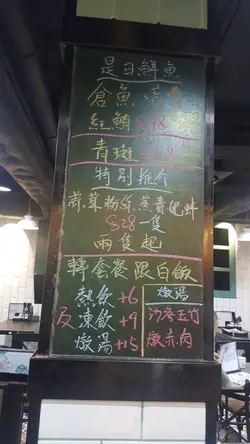 是日鮮魚
倉魚
紅鰽 $48
青斑
特別推介
粉絲蒸貴妃蚌
$28一隻
兩隻起
轉套餐跟白飯
熱飲+6
及 凍飲+9
燉湯+15
燉湯
沙參玉竹
燉赤肉